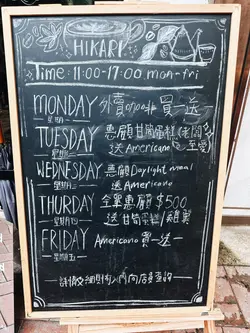 HIKARI
Time: 11:00-17:00 mon-fri
MONDAY 外賣 買一送一
星期一
TUESDAY 惠顧甘筍蛋糕(老闆至愛)
星期二 送 Americano
WEDNESDAY 惠顧 Daylight meal
星期三 送 Americano
THURDAY 全單惠顧 $500
星期四 送甘筍蛋糕/
FRIDAY Americano 買一送一
星期五